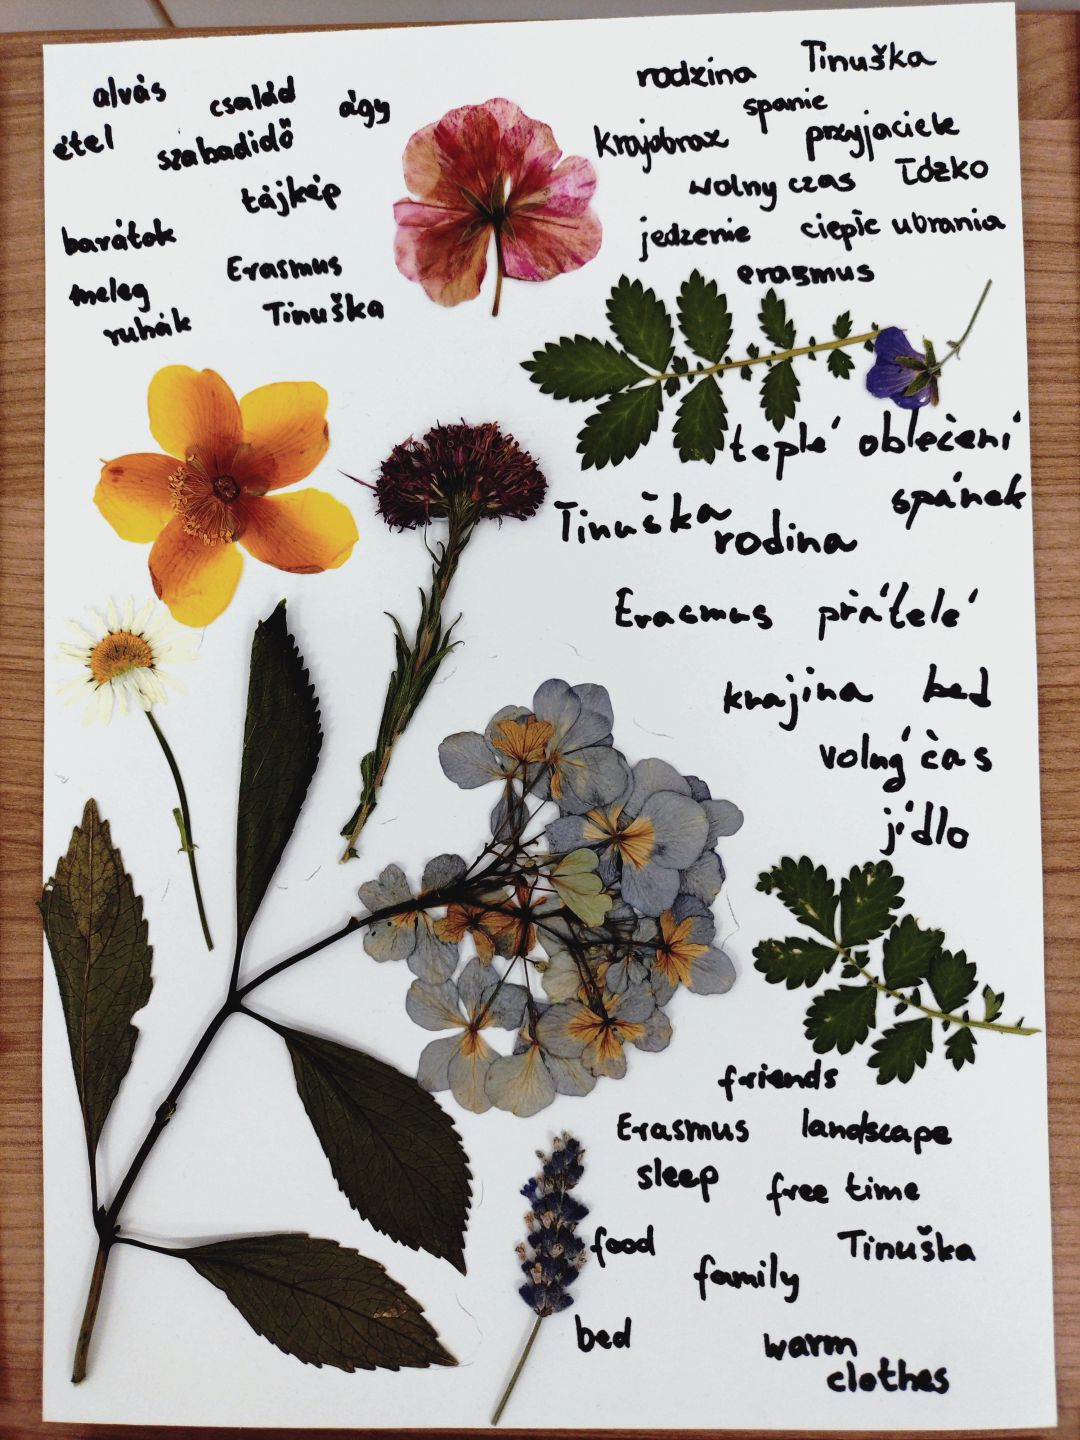 alvás család ágy
étel szabadidő
tájkép
barátok
Erasmus
meleg
ruhák Tinuška
rodzina Tinuška
spanie
krajobraz przyjaciele
wolny czas łóżko
jedzenie ciepłe ubrania
erasmus
teplé oblečení
spánek
Tinuška rodina
Erasmus přátelé
krajina bed
volný čas
jídlo
friends
Erasmus landscape
sleep free time
food Tinuška
family
bed warm
clothes